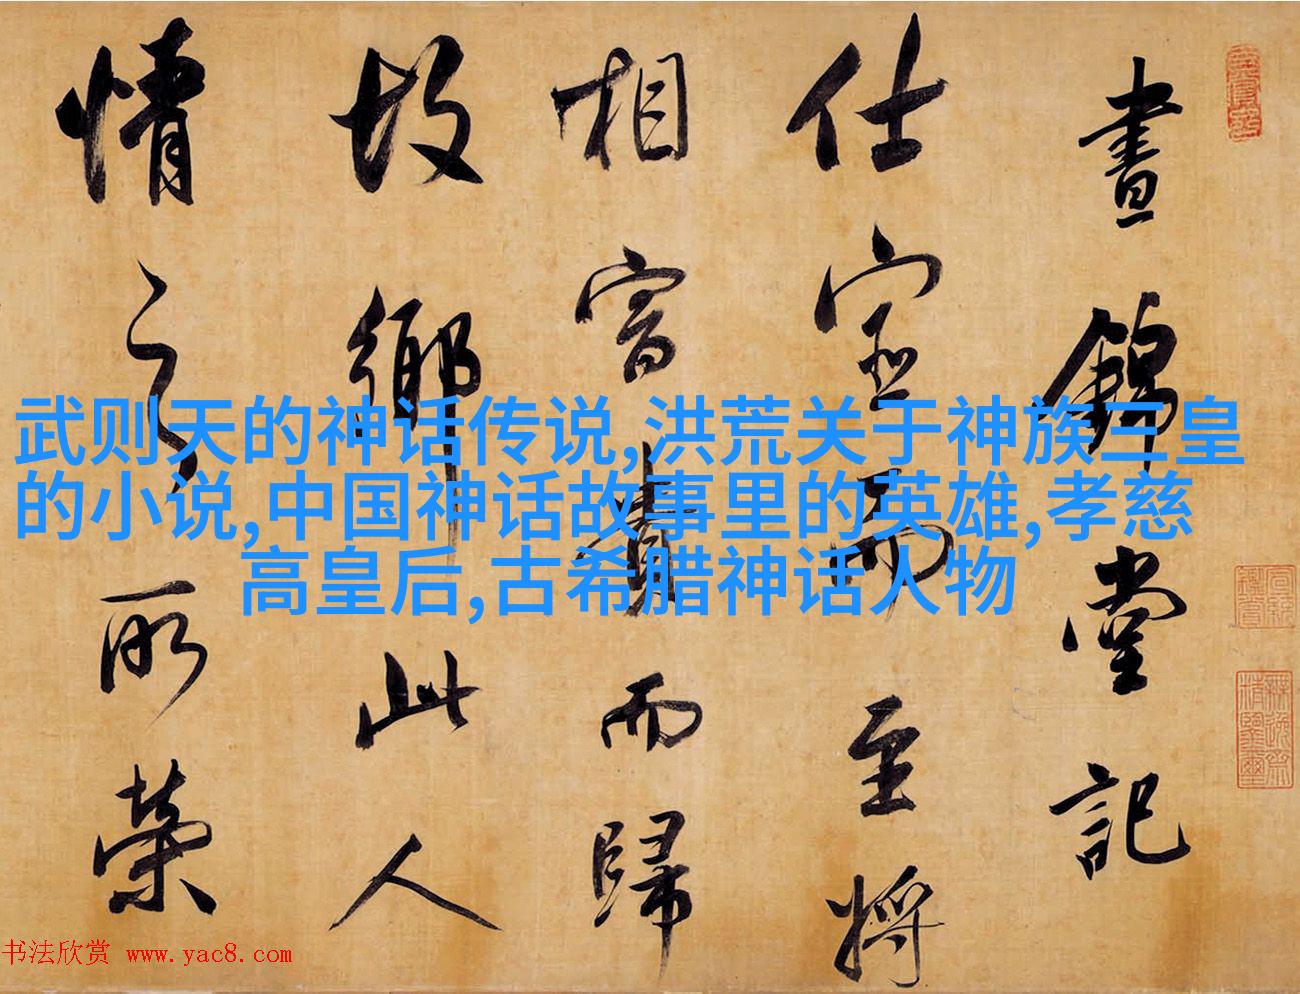 晝錦堂記
仕宦而至将
相富貴而歸
故鄉此人
情之所榮
武则天的神话传说,洪荒关于神族三皇
的小说,中国神话故事里的英雄,孝慈
高皇后,古希腊神话人物
书法欣赏 www.yac8.com